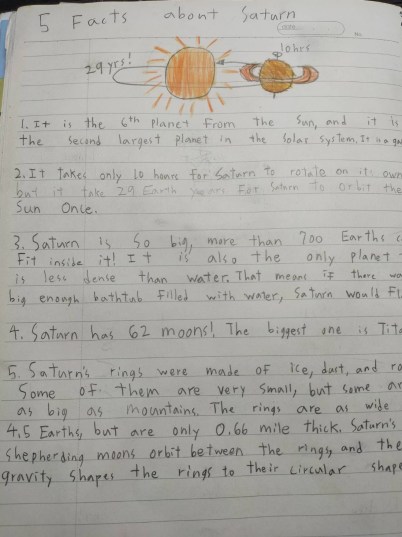 5 Facts about Saturn
10hrs
29yrs!
1. It is the 6th Planet From the Sun, and it is
the second largest planet in the Solar System. It is a
2. It takes only 10 hours for Saturn to rotate on its own
but it take 29 Earth years For Saturn to orbit the
Sun Once.
3. Saturn is So big, more than 700 Earths
Fit inside it! It is also the only planet
is less dense than water. That means if there
big enough bathtub Filled with water, Saturn would
4. Saturn has 62 moons! The biggest one is
5. Saturn's rings were made of ice, dust, and
Some of them are very Small, but some
as big as mountains. The rings are as wide
4.5 Earths, but are only 0.66 mile thick. Saturn's
Shepherding moons orbit between the rings, and the
gravity Shapes the rings to their circular shape